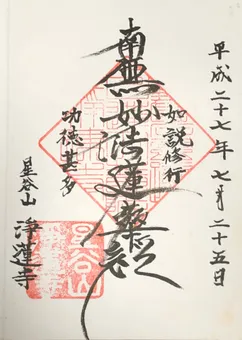 平成二十七年七月二十五日
如説修行
南無妙法蓮華経
功徳甚多
星谷山
浄蓮寺
星谷山